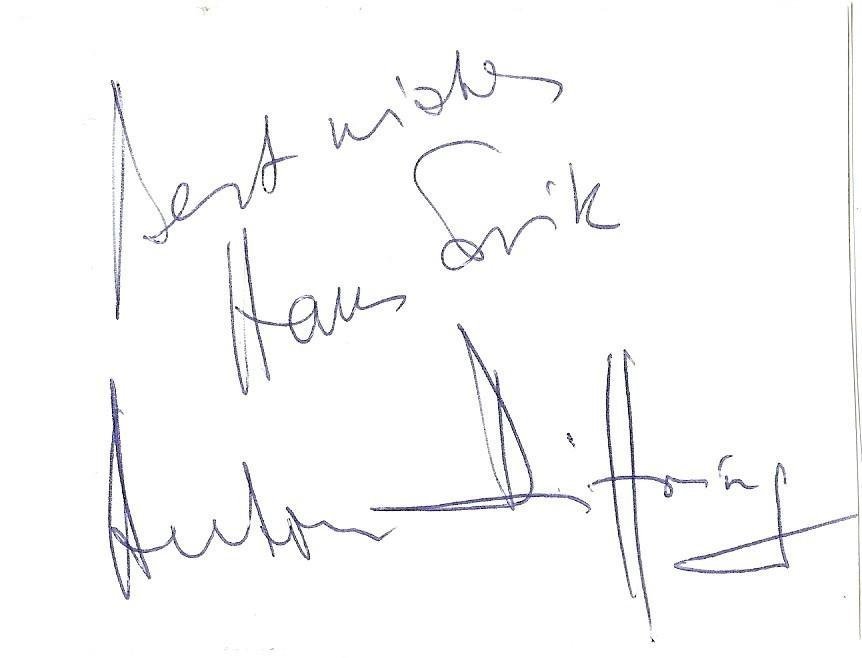 Best wishes
Hans Erik
Anton Diffring